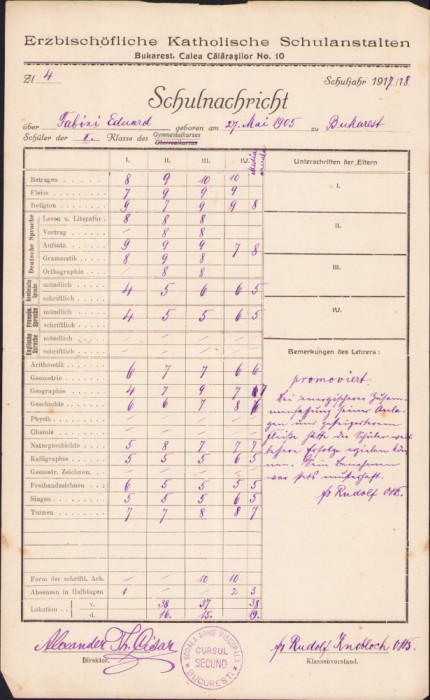 Erzbischöfliche Katholische Schulanstalten
Bukarest, Calea Călărașilor No. 10
Zl 4 Schuljahr 1917/18
Schulnachricht
über Fabini Eduard geboren am 27. Mai 1905 zu Bukarest
Schüler der I. Klasse des Gymnasialkurses
Oberrealkurses
I. II. III. IV. Unterschriften der Eltern
Betragen 8 9 10 10
Fleiss 7 9 9 9
Religion 9 7 9 9 8
Deutsche Sprache
Lesen u. Literatur 8 8 8
Vortrag - 8 8
Aufsatz 9 9 9 7 8
Grammatik 8 9 8
Orthographie - 8 8
mündlich 4 5 6 6 5
schriftlich
Französ. Sprache
mündlich 4 5 5 6 5
schriftlich
Englische Sprache
mündlich
schriftlich
Arithmetik 6 7 7 6 6
Geometrie
Geographie 4 7 9 7 7
Geschichte 6 6 7 8
Physik
Chemie
Naturgeschichte 5 8 7 7 7
Kalligraphie 5 5 5 6 5
Geometr. Zeichnen
Freihandzeichnen 6 5 5 5 5
Singen 5 5 5 6 5
Turnen 7 7 8 8 7
Form der schriftl. Arb. 10 10
Absenzen in Halbtagen 1 - - 2 3
Lokation v. 38 37 38
d. 16. 15. 19.
I.
II.
III.
IV.
Bemerkungen des Lehrers:
promoviert.
Bei energischerer Zusam-
menfassung seiner Anla-
gen und gesteigertem
Fleiße hätte der Schüler weit
bessere Erfolge erzielen kön-
nen. Sein Benehmen
war stets musterhaft.
fr Rudolf
Alexander Th. Cisar
Direktor.
SCOALA ARHIEPISCOPALA
CURSUL
SECUND
BUCURESTI
fr Rudolf Knobloch
Klassenvorstand.